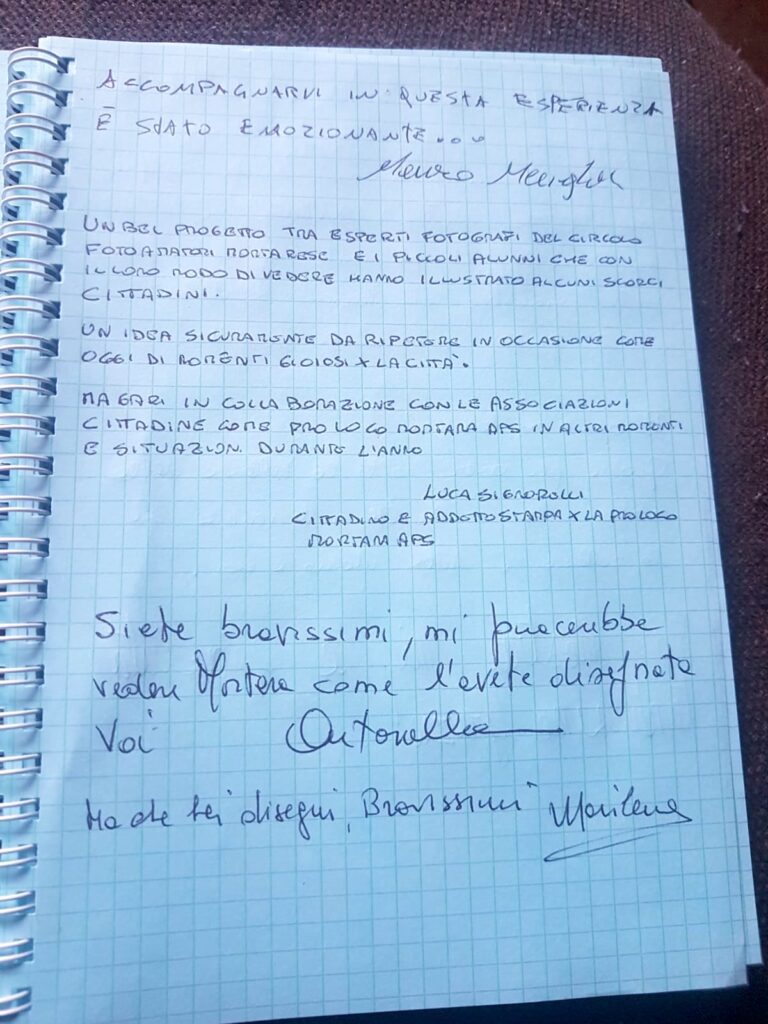 ACCOMPAGNARVI IN QUESTA ESPERIENZA
È STATO EMOZIONANTE...
Mauro
UN BEL PROGETTO TRA ESPERTI FOTOGRAFI DEL CIRCOLO
FOTOAMATORI MORTARESE E I PICCOLI ALUNNI CHE CON
IL LORO MODO DI VEDERE HANNO ILLUSTRATO ALCUNI SCORCI
CITTADINI.
UN IDEA SICURAMENTE DA RIPETERE IN OCCASIONE COME
OGGI DI MOMENTI GIOIOSI X LA CITTÀ.
MAGARI IN COLLABORAZIONE CON LE ASSOCIAZIONI
CITTADINE COME PRO LOCO MORTARA APS IN ALTRI MOMENTI
E SITUAZIONI DURANTE L'ANNO
LUCA SIGNORELLI
CITTADINO E ADDETTO STAMPA X LA PRO LOCO
MORTARA APS
Siete bravissimi, mi piacerebbe
vedere Mortara come l'avete disegnata
Voi Antonella
Ma che bei disegni, Bravissimi Marilena